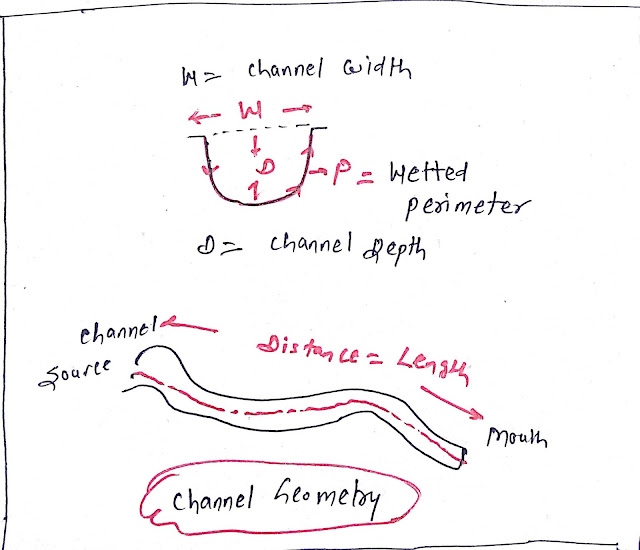 W = channel width
W
D
P = Wetted
perimeter
D = channel Depth
channel
Source
Distance = Length
Mouth
Channel Geometry